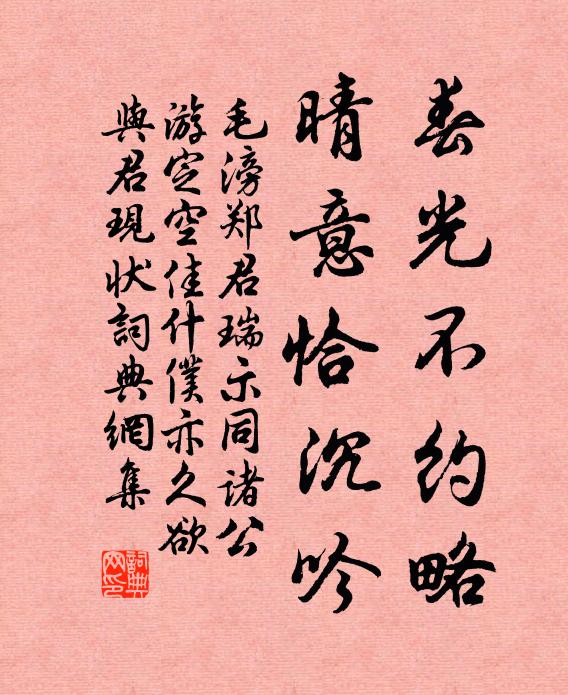 春光不约略
晴意恰沉吟
毛滂郑君瑞示同诸公
游定空佳什僕亦久欲
與君現状詞典網集
詞典网印